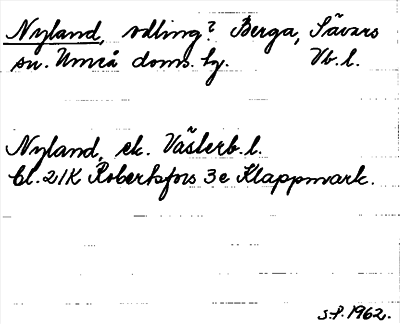 Nyland, odling? Berga, Sävars
sn. Umeå doms. hg. Vb. l.
Nyland, ek. Västerb. l.
bl. 21K Robertsfors 3e Klappmark.
S.F. 1962.